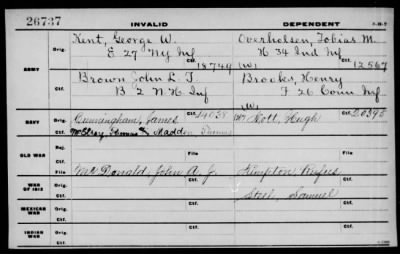 26737 INVALID DEPENDENT
Kent, George W. Overholsen, Tobias M.
ARMY Orig. E 27 Ny Inf H 34 Ind Inf
Ctf. 18749 (W) Ctf. 12567
Brown John L. T. Brooks, Henry
Orig. B 2 N.H. Inf F 26 Conn. Inf
Ctf. (W)
NAVY Orig. Cunningham, James 14038 Holl, Hugh Ctf. 20395
Ctf. McElroy, Thomas & Madden Thomas
OLD WAR Orig. File
Ctf. File
WAR OF 1812 Orig. McDonald, John A. J. Kimpton, Rufus
Ctf. Steel, Samuel
MEXICAN WAR Orig. Ctf. Ctf.
Ctf.
INDIAN WAR Orig. Ctf. Ctf.
Ctf.